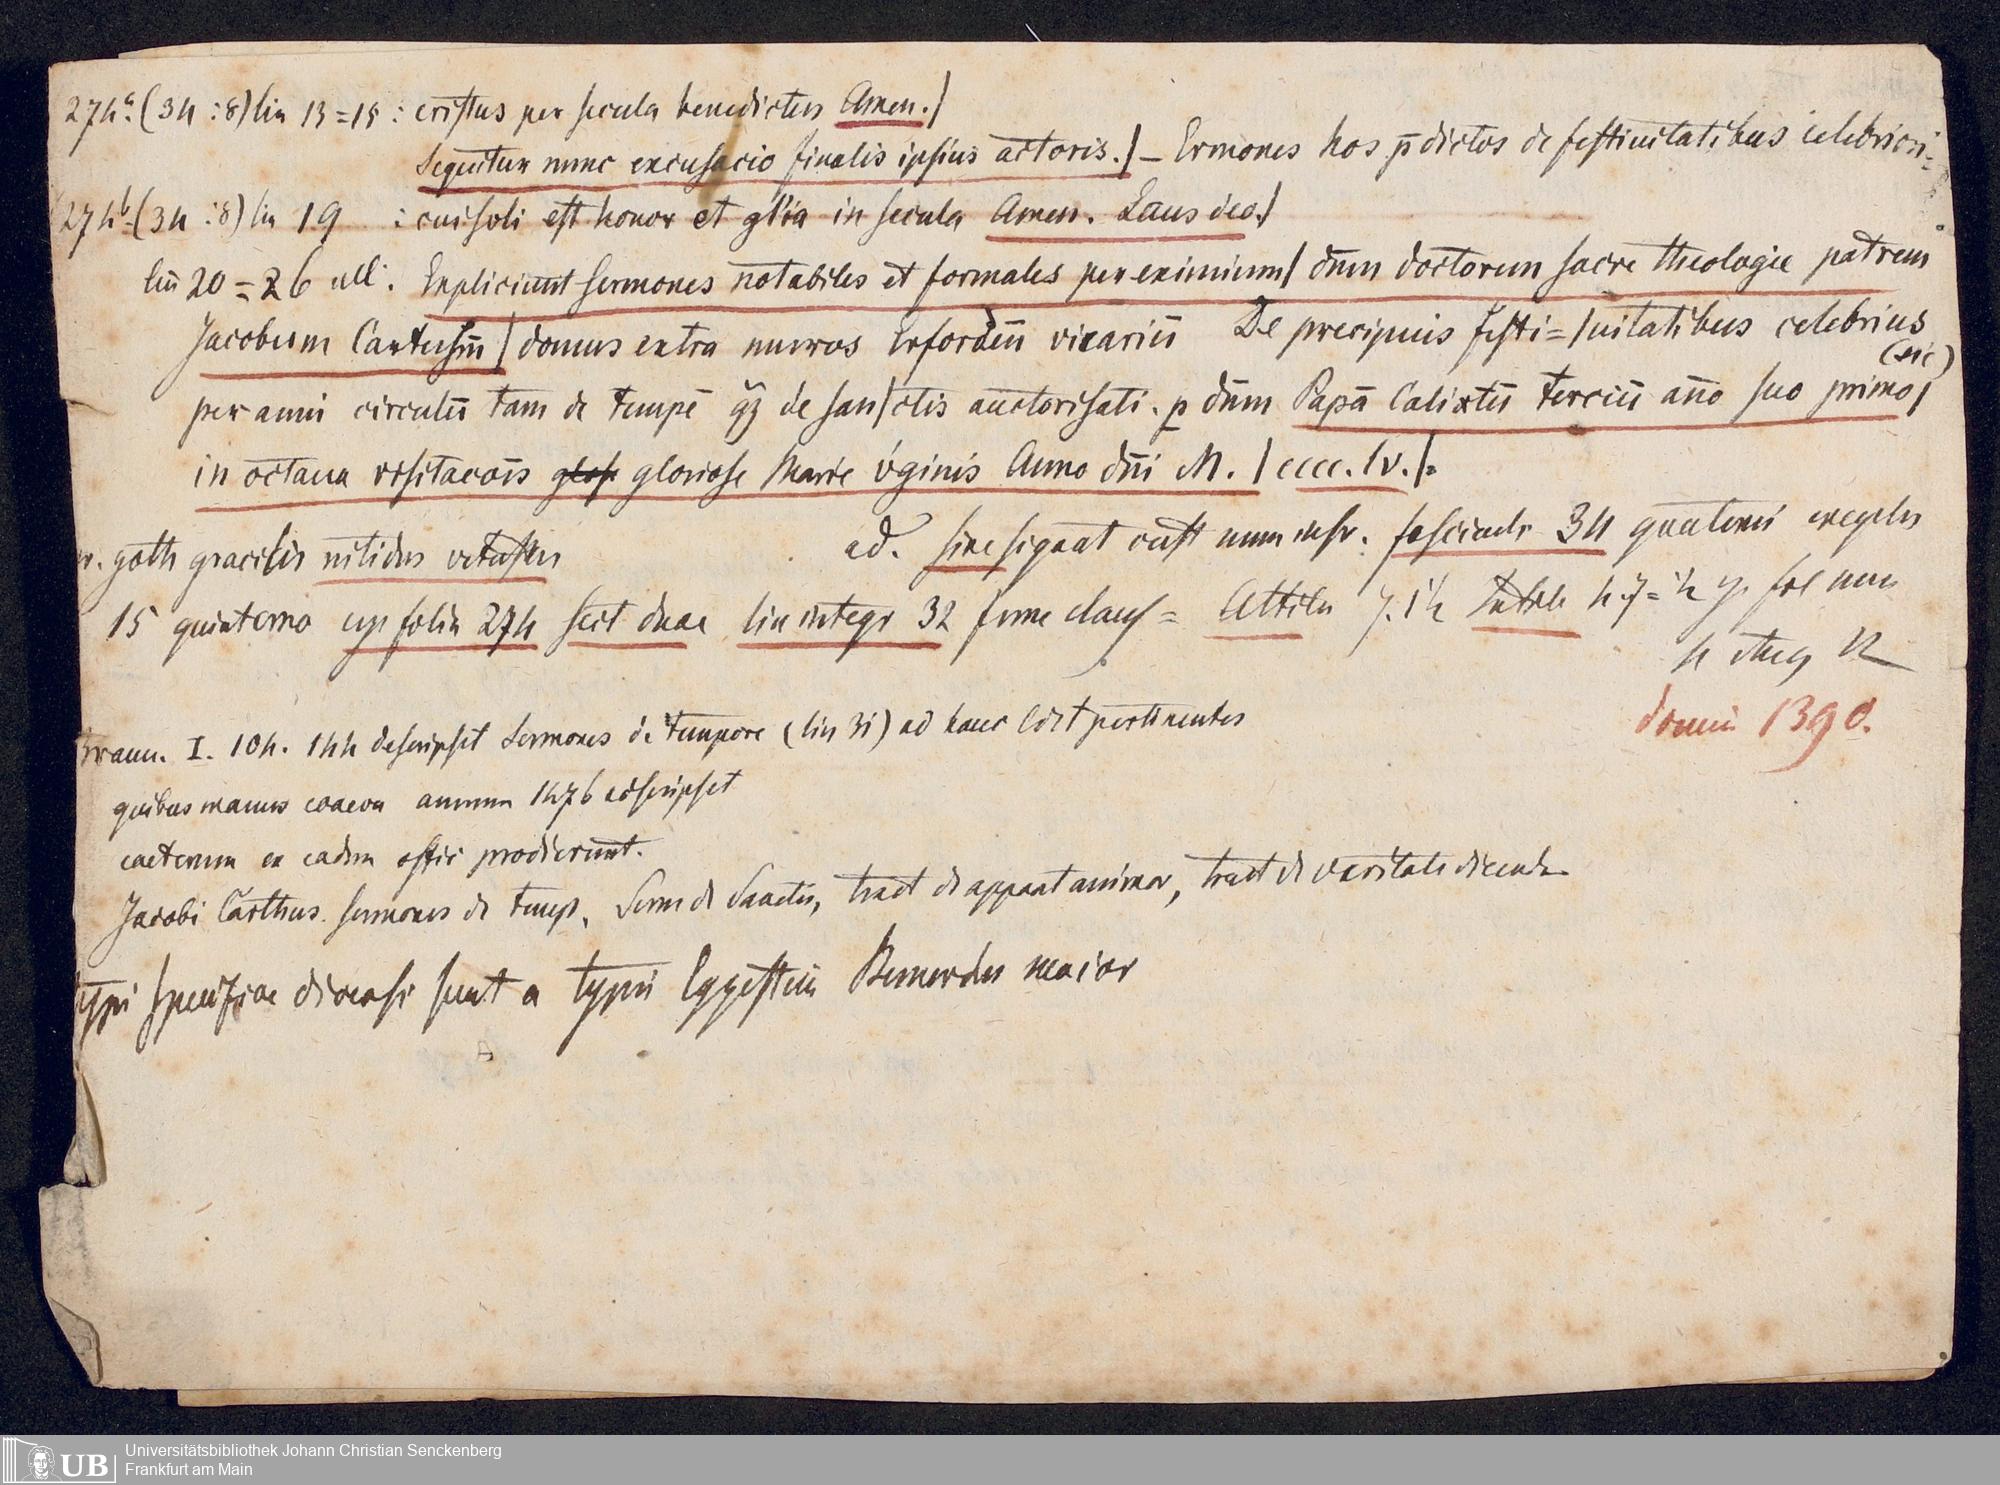 274a (34:8) lin 13=15: cristus per secula benedictus Amen./
Sequitur nunc excusacio finalis ipsius actoris./ — Ermones hos p̄dictos de festiuitatibus celebriori=
274b (34:8) lin 19 : cui soli est honor et gl'ia in secula Amen. Laus deo./
lin 20=26 ult: Expliciunt sermones notabiles et formales per eximium/ dn̄m doctorem sacre theologie patrem
Jacobum Cartusiēn/ domus extra muros Erforden̄ vicariū De precipuis festi=/uitatibus celebrius
(sic)
per anni circulū tam de tempē qȝ de san/ctis auctorisati. p dn̄m Papā Calixtū terciū an̄o suo primo/
in octaua visitacōis gloriose Marie v'ginis Anno dn̄i M./cccc.lv./=
goth gracilis nitidus vetustus ad. sine signat cust num inscr. fascicule 34 quaterni exceptis
15 quinterno folia 274 duae lin integr 32
Aug
domini 1390.
Braun. I. 104. 144 descripsit Sermones de tempore (lin 31) ad hanc Edit pertinentes
quibus manus coaeva annum 1476 adscripsit
caeterum ex eadem offic prodierunt.
Jacobi Carthus. sermones de temp., Serm de Sanctis, tract de apparat animar, tract de veritate dicenda
typi specifice diversi sunt a typis Eggestein Bernardus maior
Universitätsbibliothek Johann Christian Senckenberg
Frankfurt am Main
UB